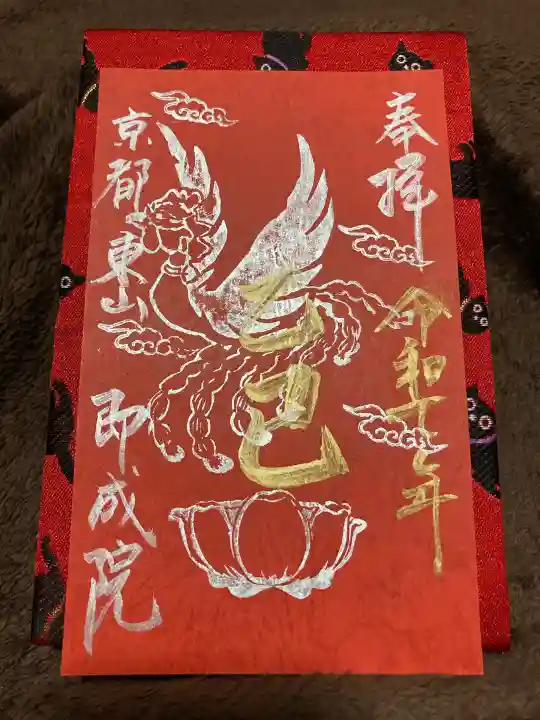 奉拝
令和七年
乙巳
京都東山 即成院